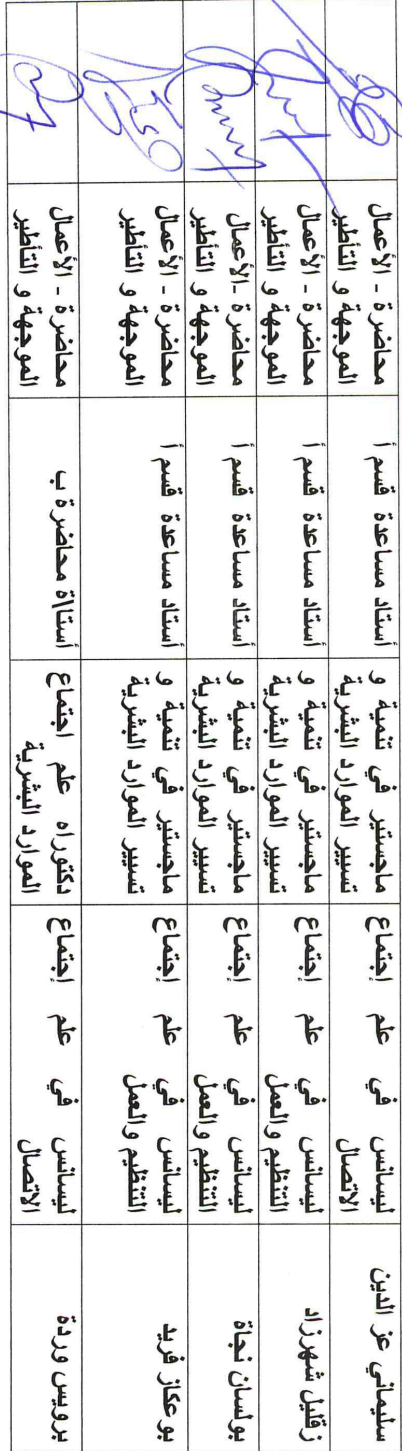 سليماني عز الدين
ليسانس في علم إجتماع
الاتصال
ماجستير في تنمية و
تسيير الموارد البشرية
أستاد مساعدة قسم أ
محاضرة - الأعمال
الموجهة و التأطير
زقليل شهرزاد
ليسانس في علم إجتماع
التنظيم والعمل
ماجستير في تنمية و
تسيير الموارد البشرية
أستاد مساعدة قسم أ
محاضرة - الأعمال
الموجهة و التأطير
بولسان نجاة
ليسانس في علم إجتماع
التنظيم والعمل
ماجستير في تنمية و
تسيير الموارد البشرية
أستاد مساعدة قسم أ
محاضرة -الأعمال
الموجهة و التأطير
بوعكاز فريد
ليسانس في علم إجتماع
التنظيم والعمل
ماجستير في تنمية و
تسيير الموارد البشرية
أستاد مساعدة قسم أ
محاضرة - الأعمال
الموجهة و التأطير
برويس وردة
ليسانس في علم إجتماع
الاتصال
دكتوراه علم اجتماع
الموارد البشرية
أستا\ة محاضرة ب
محاضرة - الأعمال
الموجهة و التأطير